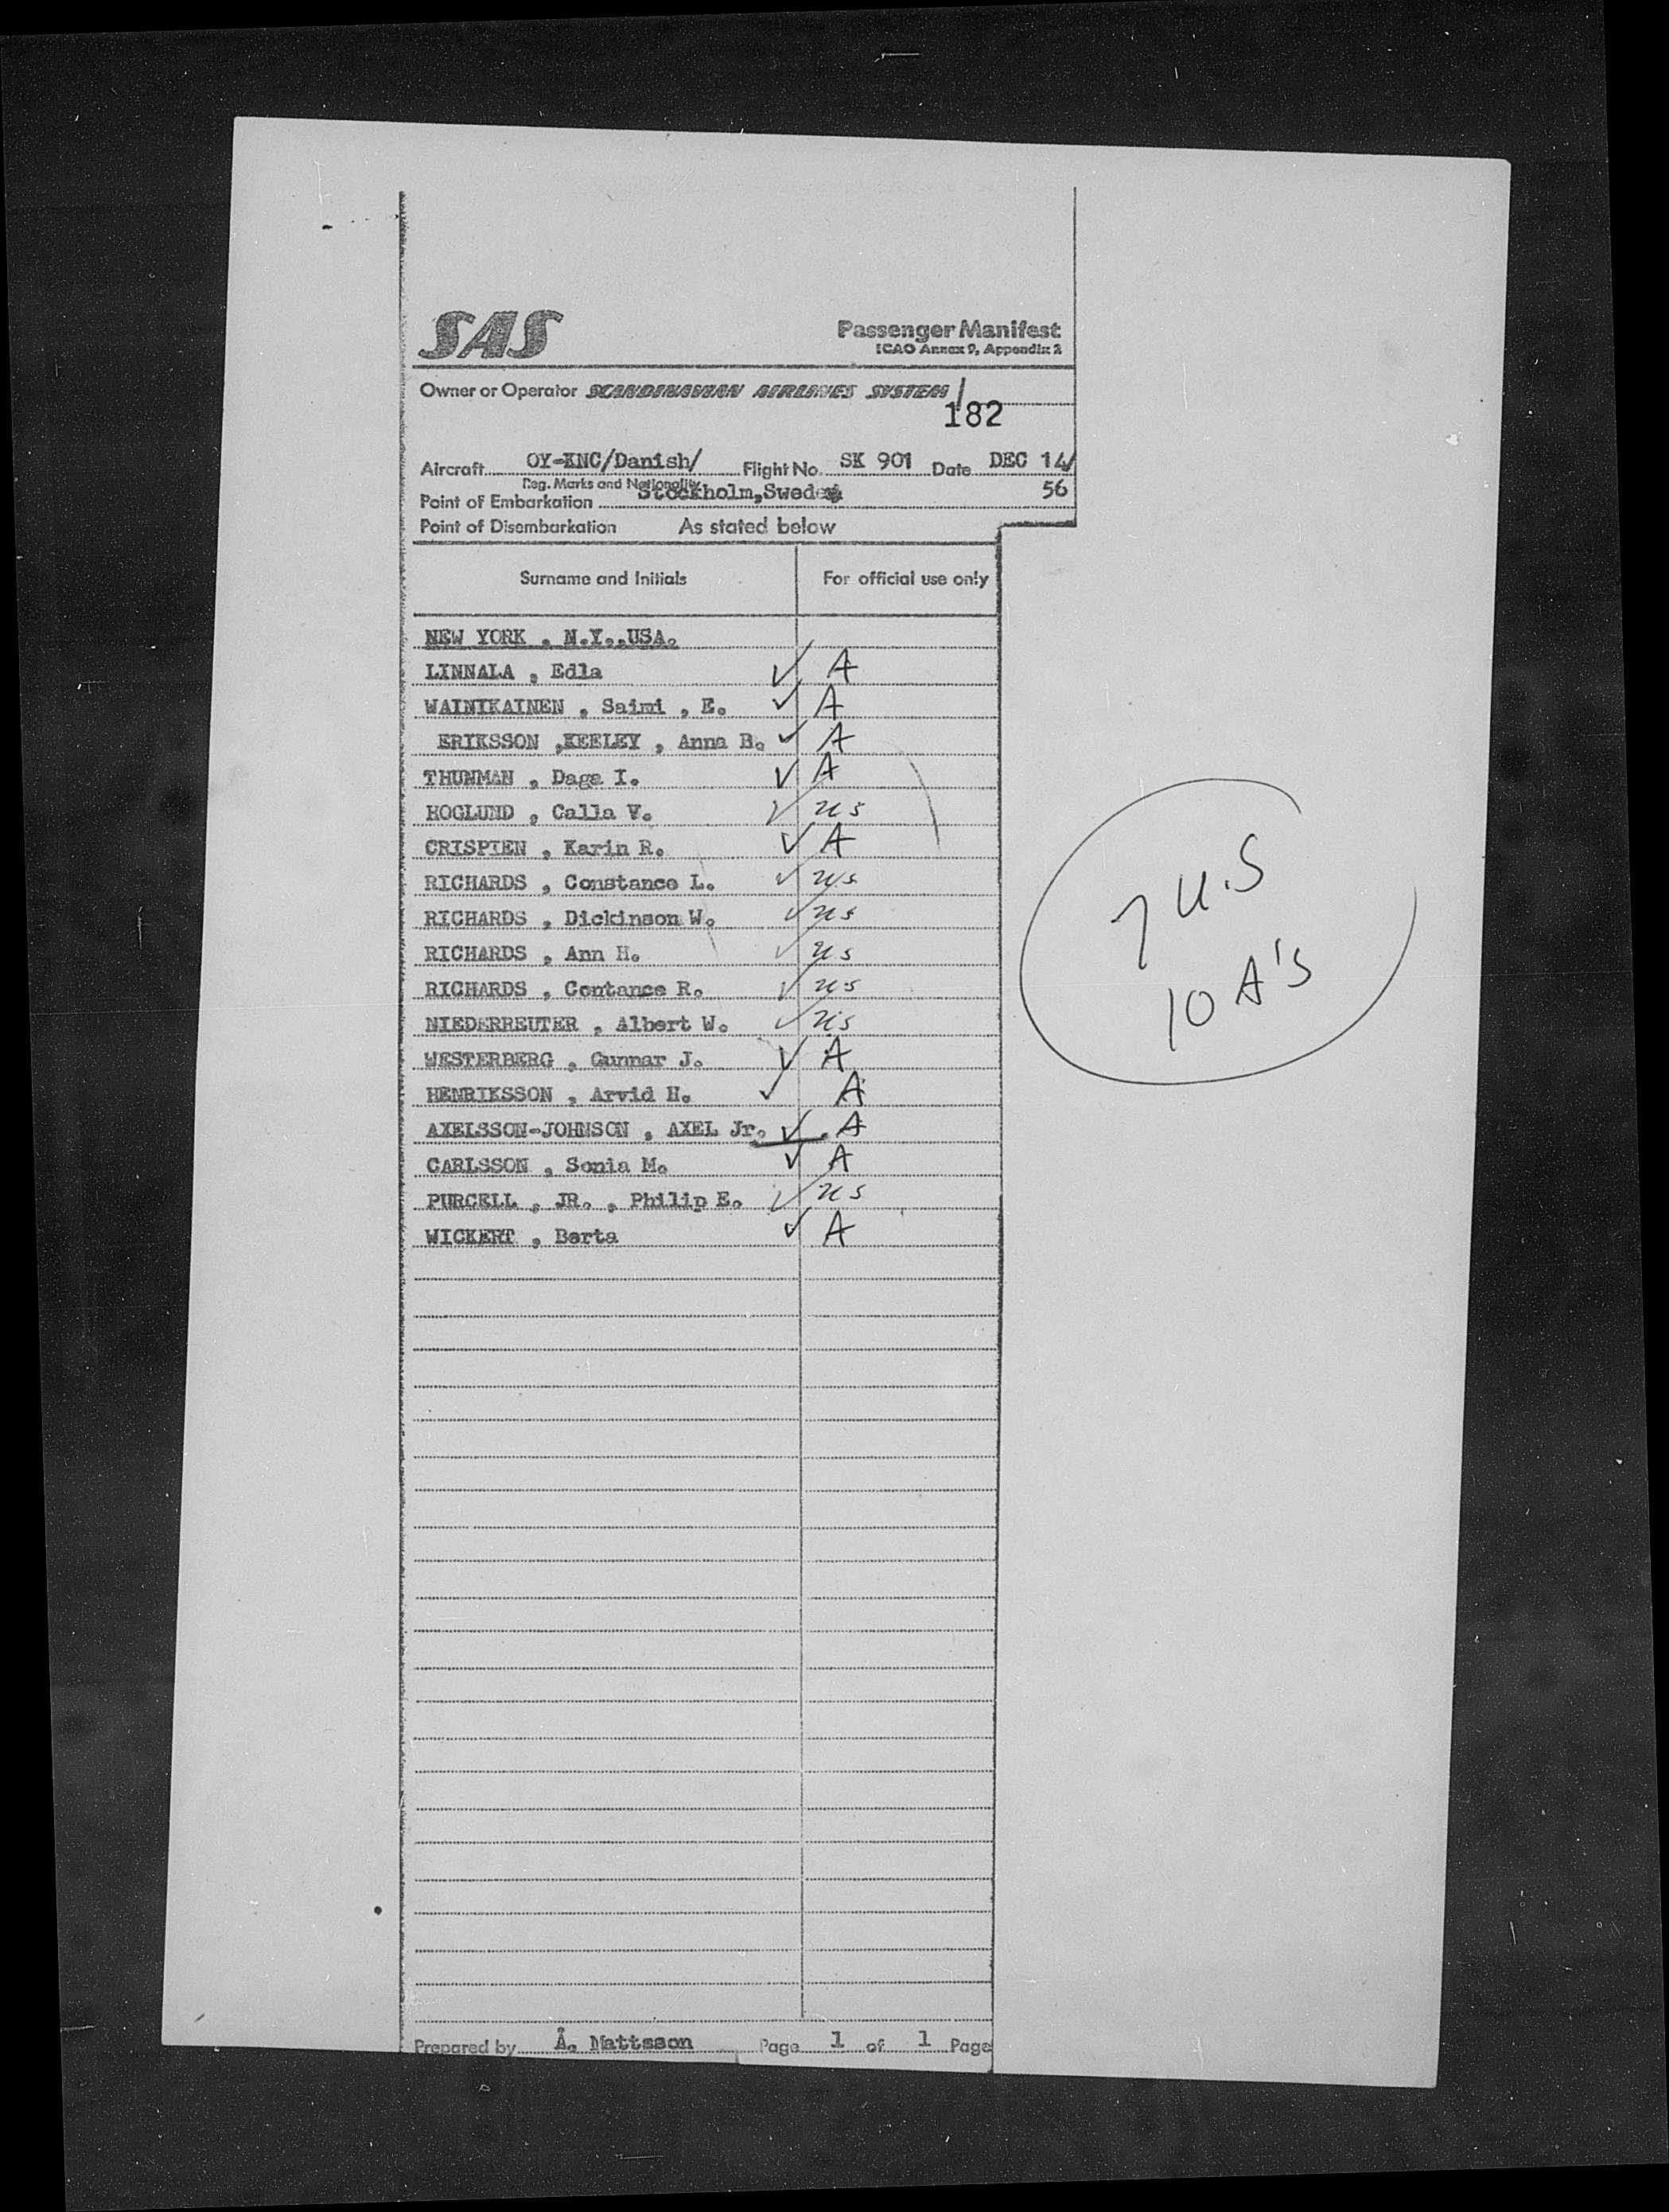 SAS
Passenger Manifest
ICAO Annex 9, Appendix 2
Owner or Operator SCANDINAVIAN AIRLINES SYSTEM /
182
Aircraft OY-KNC/Danish/ Flight No. SK 901 Date DEC 14/
Reg. Marks and Nationality 56
Point of Embarkation Stockholm,Sweden
Point of Disembarkation As stated below
Surname and Initials For official use only
NEW YORK , N.Y.,USA.
LINNALA , Edla ✓ A
WAINIKAINEN , Saimi , E. ✓ A
ERIKSSON ,KEELEY , Anna B. ✓ A
THUNMAN , Daga I. ✓ A
HOGLUND , Calla V. ✓ us
CRISPIEN , Karin R. ✓ A
RICHARDS , Constance L. ✓ us
RICHARDS , Dickinson W. ✓ us
RICHARDS , Ann H. ✓ us
RICHARDS , Contance R. ✓ us
NIEDERREUTER , Albert W. ✓ us
WESTERBERG , Gunnar J. ✓ A
HENRIKSSON , Arvid H. ✓ A
AXELSSON-JOHNSON , AXEL Jr. ✓ A
CARLSSON , Sonia M. ✓ A
PURCELL , JR. , Philip E. ✓ us
WICKERT , Berta ✓ A
7 U.S
10 A'S
Prepared by Å. Mattsson Page 1 of 1 Page